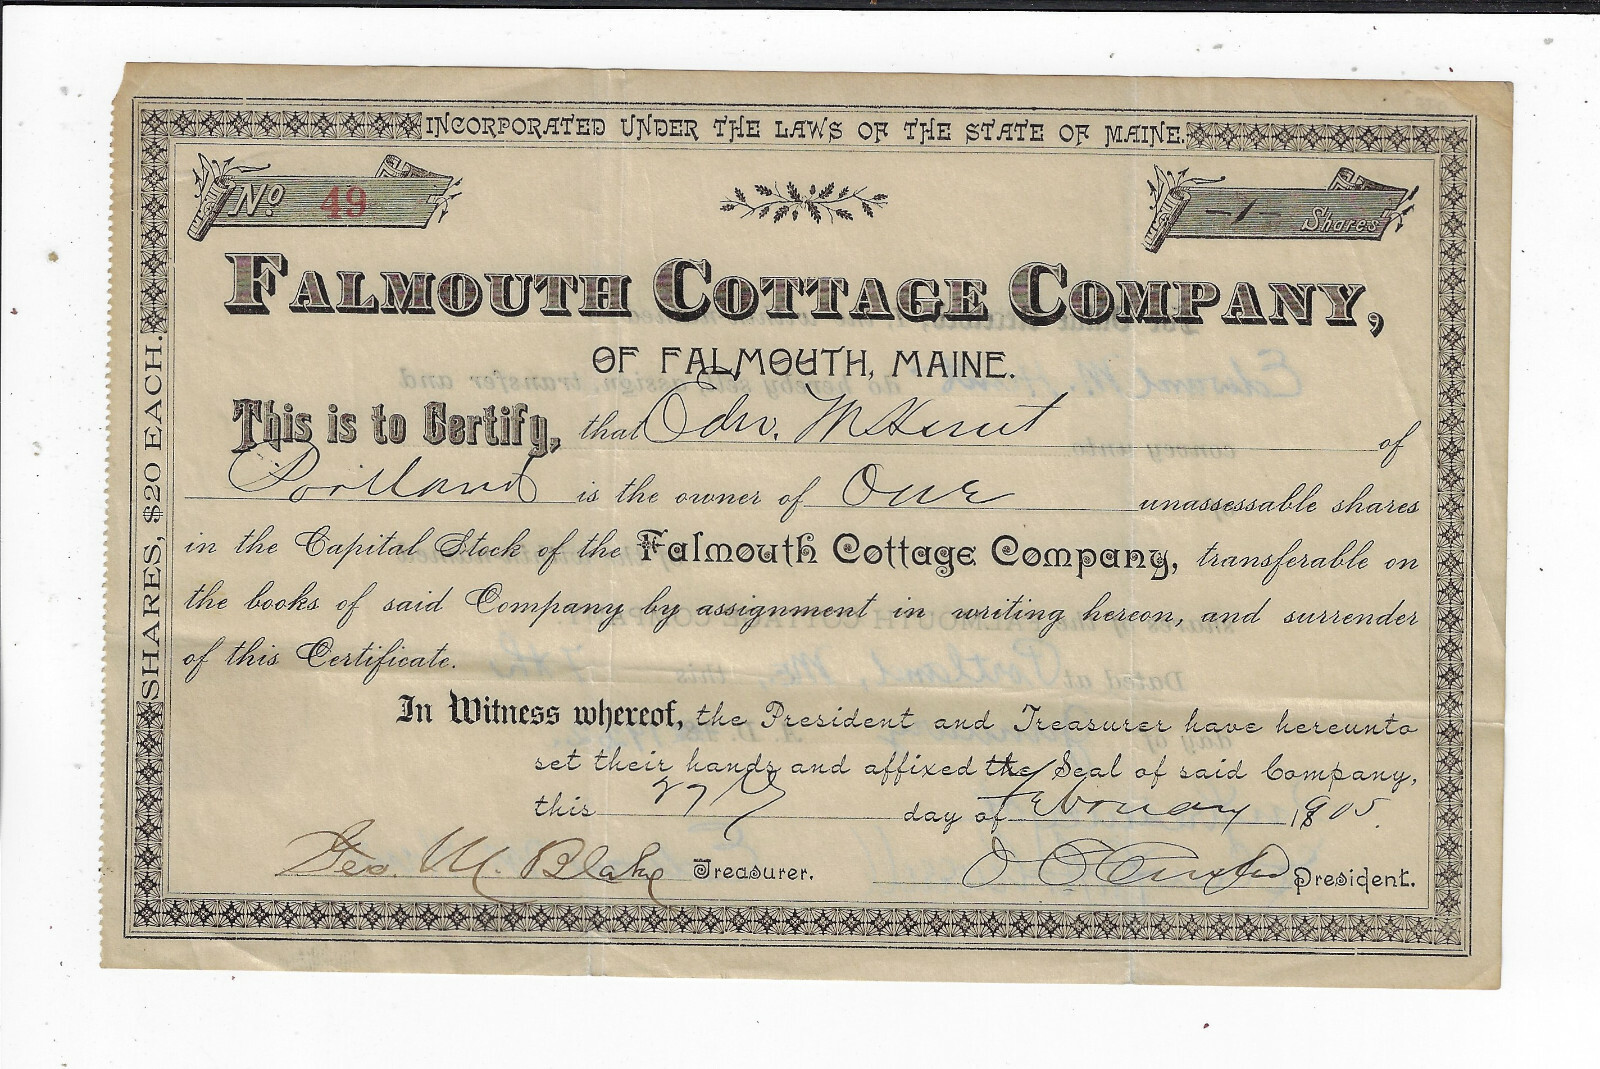 INCORPORATED UNDER THE LAWS OF THE STATE OF MAINE.
No 49
-1- Shares
FALMOUTH COTTAGE COMPANY,
OF FALMOUTH, MAINE.
This is to Certify, that Edw. M of
Portland is the owner of One unassessable shares
in the Capital Stock of the Falmouth Cottage Company, transferable on
the books of said Company by assignment in writing hereon, and surrender
of this Certificate.
In Witness whereof, the President and Treasurer have hereunto
set their hands and affixed the Seal of said Company,
this 27th day of February 1905.
Geo. M. Blake Treasurer. President.
SHARES, $20 EACH.